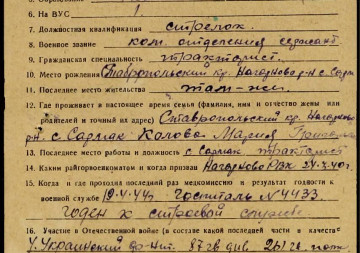 6. На ВУС 1.
7. Должностная квалификация стрелок
8. Военное звание ком. отделения сержант
9. Гражданская специальность тракторист
10. Место рождения Ставропольский кр.
11. Последнее место жительства там-же
12. Где проживает в настоящее время семья (фамилия, имя и отчество жены или
родителей и точный их адрес) Ставропольский кр.
р-н. с. Мария
13. Последнее место работы и должность с. тракторист
14. Каким райгорвоенкоматом и когда призван РВК
15. Когда и где проходил последний раз медкомиссию и результат годности к
военной службе госпиталь № 4433
годен к строевой службе
16. Участие в Отечественной войне (в составе какой последней части и в качестве
Украинский 87 гв. див. 261 гв.